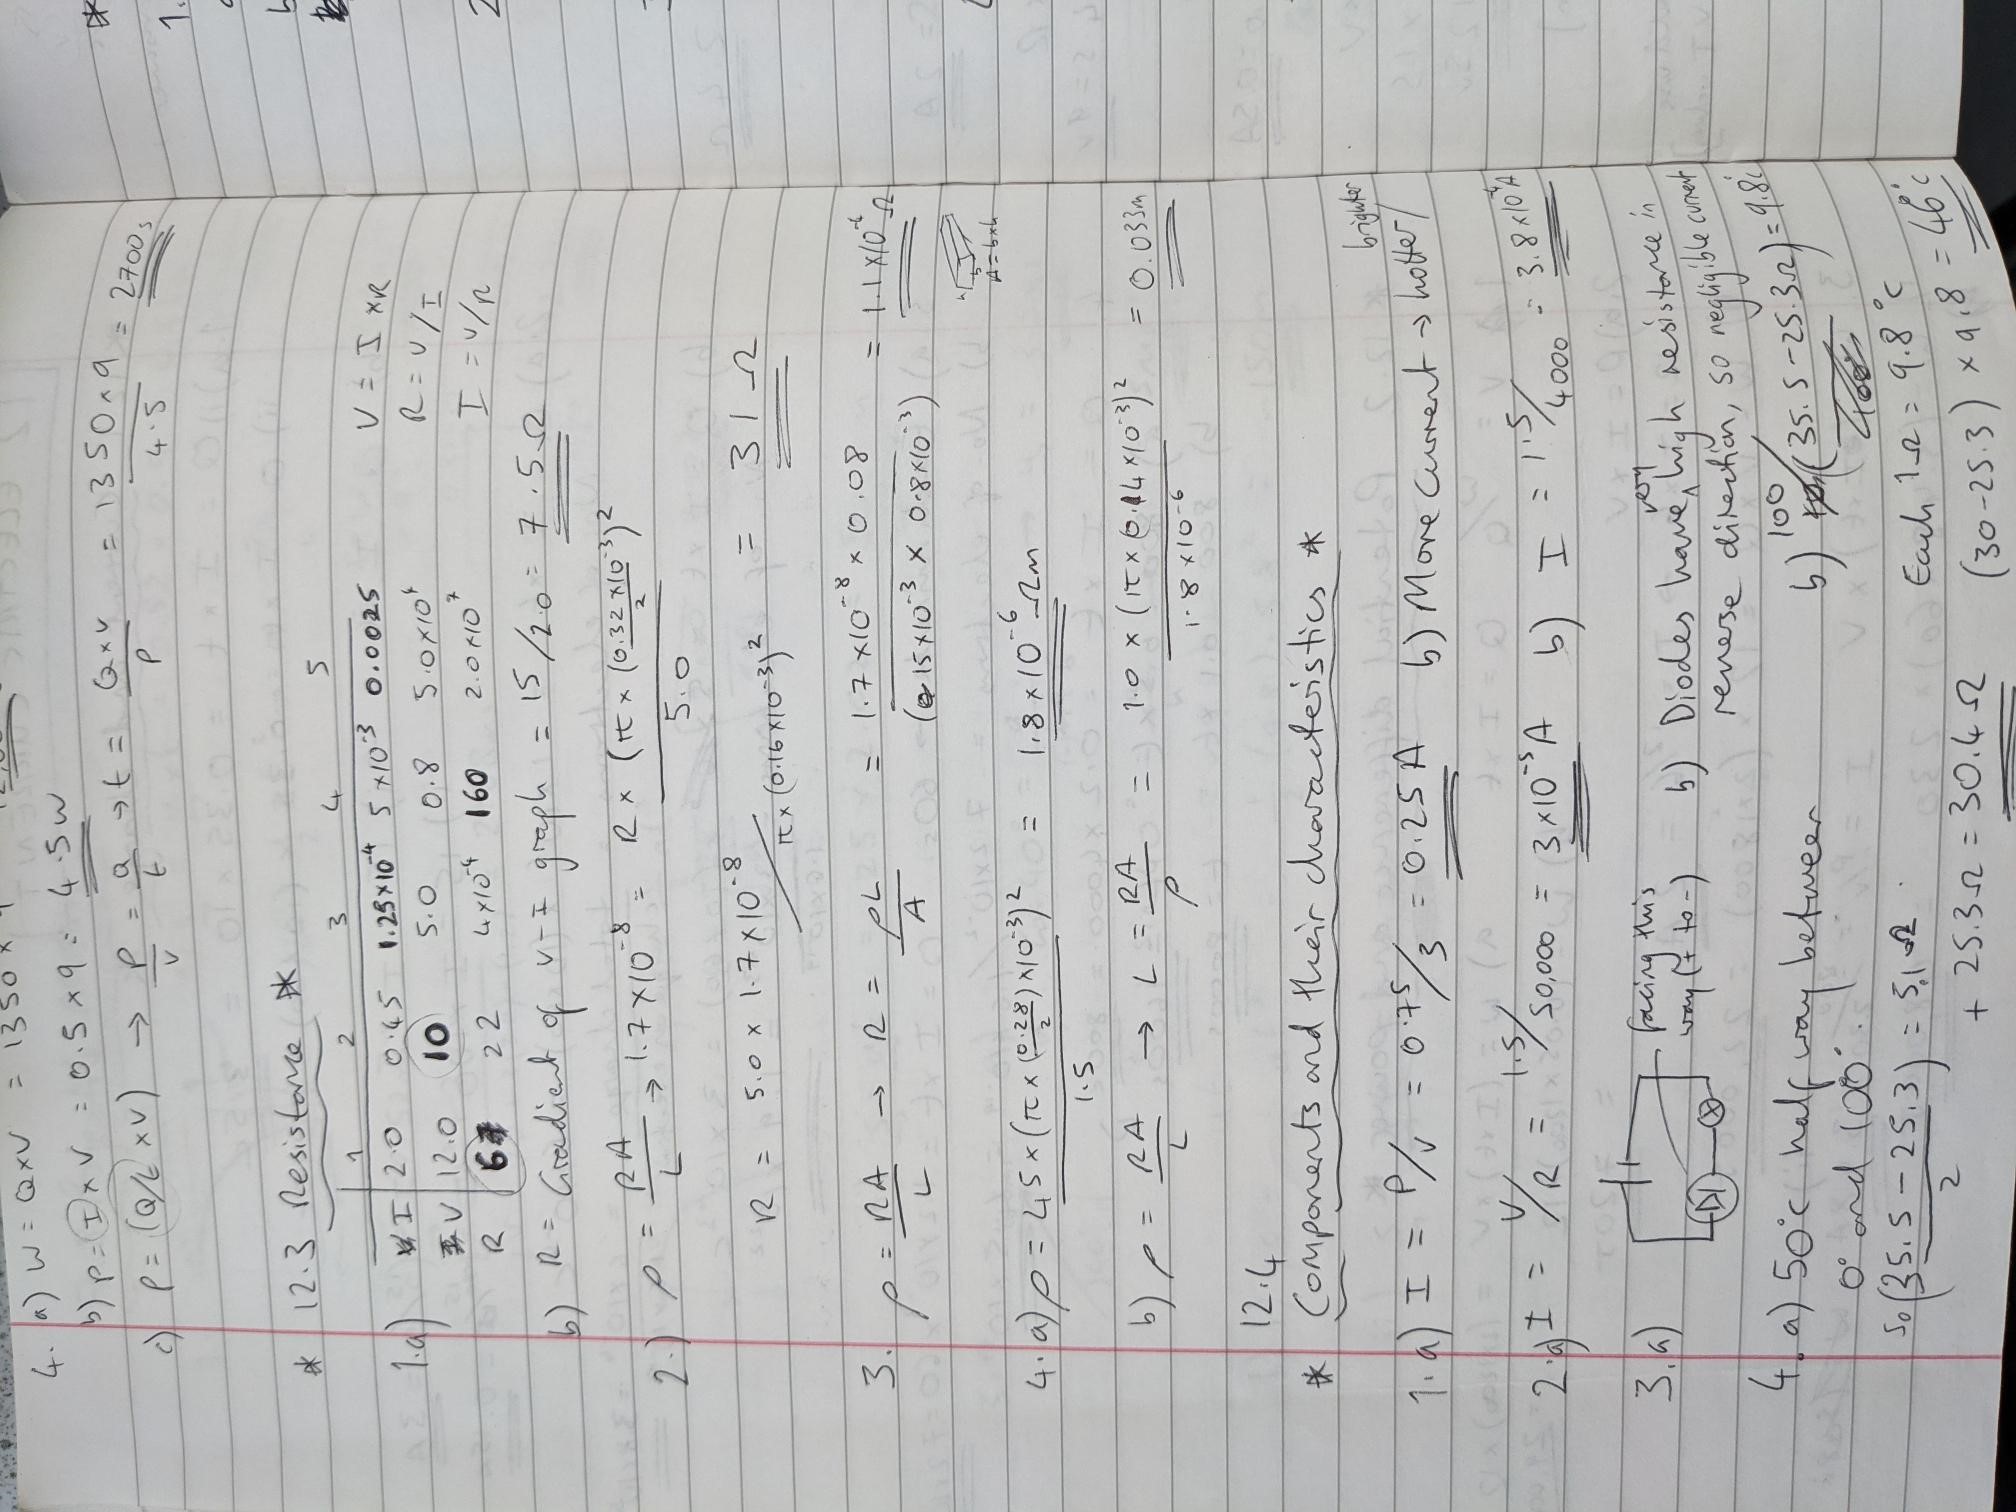 4. a) W = Q×V = 1350 ×
b) P = I × V = 0.5 × 9 = 4.5W
c) P = (Q/t × V) → P/V = Q/t → t = Q×V/P = 1350×9/4.5 = 2700s
* 12.3 Resistance *
1 2 3 4 5
1.a) I 2.0 0.45 1.25×10⁻⁴ 5×10⁻³ 0.0025 V = I×R
V 12.0 10 5.0 0.8 5.0×10⁴ R = V/I
R 6 22 4×10⁴ 160 2.0×10⁷ I = V/R
b) R = Gradient of V-I graph = 15/2.0 = 7.5Ω
2.) ρ = RA/L → 1.7×10⁻⁸ = R × (π × (0.32×10⁻³/2)²/5.0
R = 5.0 × 1.7×10⁻⁸/π×(0.16×10⁻³)² = 31Ω
3. ρ = RA/L → R = ρL/A = 1.7×10⁻⁸ × 0.08/(15×10⁻³ × 0.8×10⁻³) = 1.1×10⁻⁶Ω
A=b×h
4. a) ρ = 45×(π×(0.28/2)×10⁻³)²/1.5 = 1.8×10⁻⁶Ωm
b) ρ = RA/L → L = RA/ρ = 1.0×(π×(0.14×10⁻³)²/1.8×10⁻⁶ = 0.033m
12.4
* Components and their characteristics *
1. a) I = P/V = 0.75/3 = 0.25A b) More current → hotter/brighter
2. a) I = V/R = 1.5/50,000 = 3×10⁻⁵A b) I = 1.5/4000 = 3.8×10⁻⁴A
3. a) facing this way (+ to -) b) Diodes have very high resistance in
reverse direction, so negligible current
4. a) 50°c half way between b) 100/(35.5-25.3Ω) = 9.8°c
0° and 100°.
So (35.5-25.3)/2 = 5.1Ω. Each 1Ω = 9.8°c
+ 25.3Ω = 30.4Ω (30-25.3) × 9.8 = 46°c